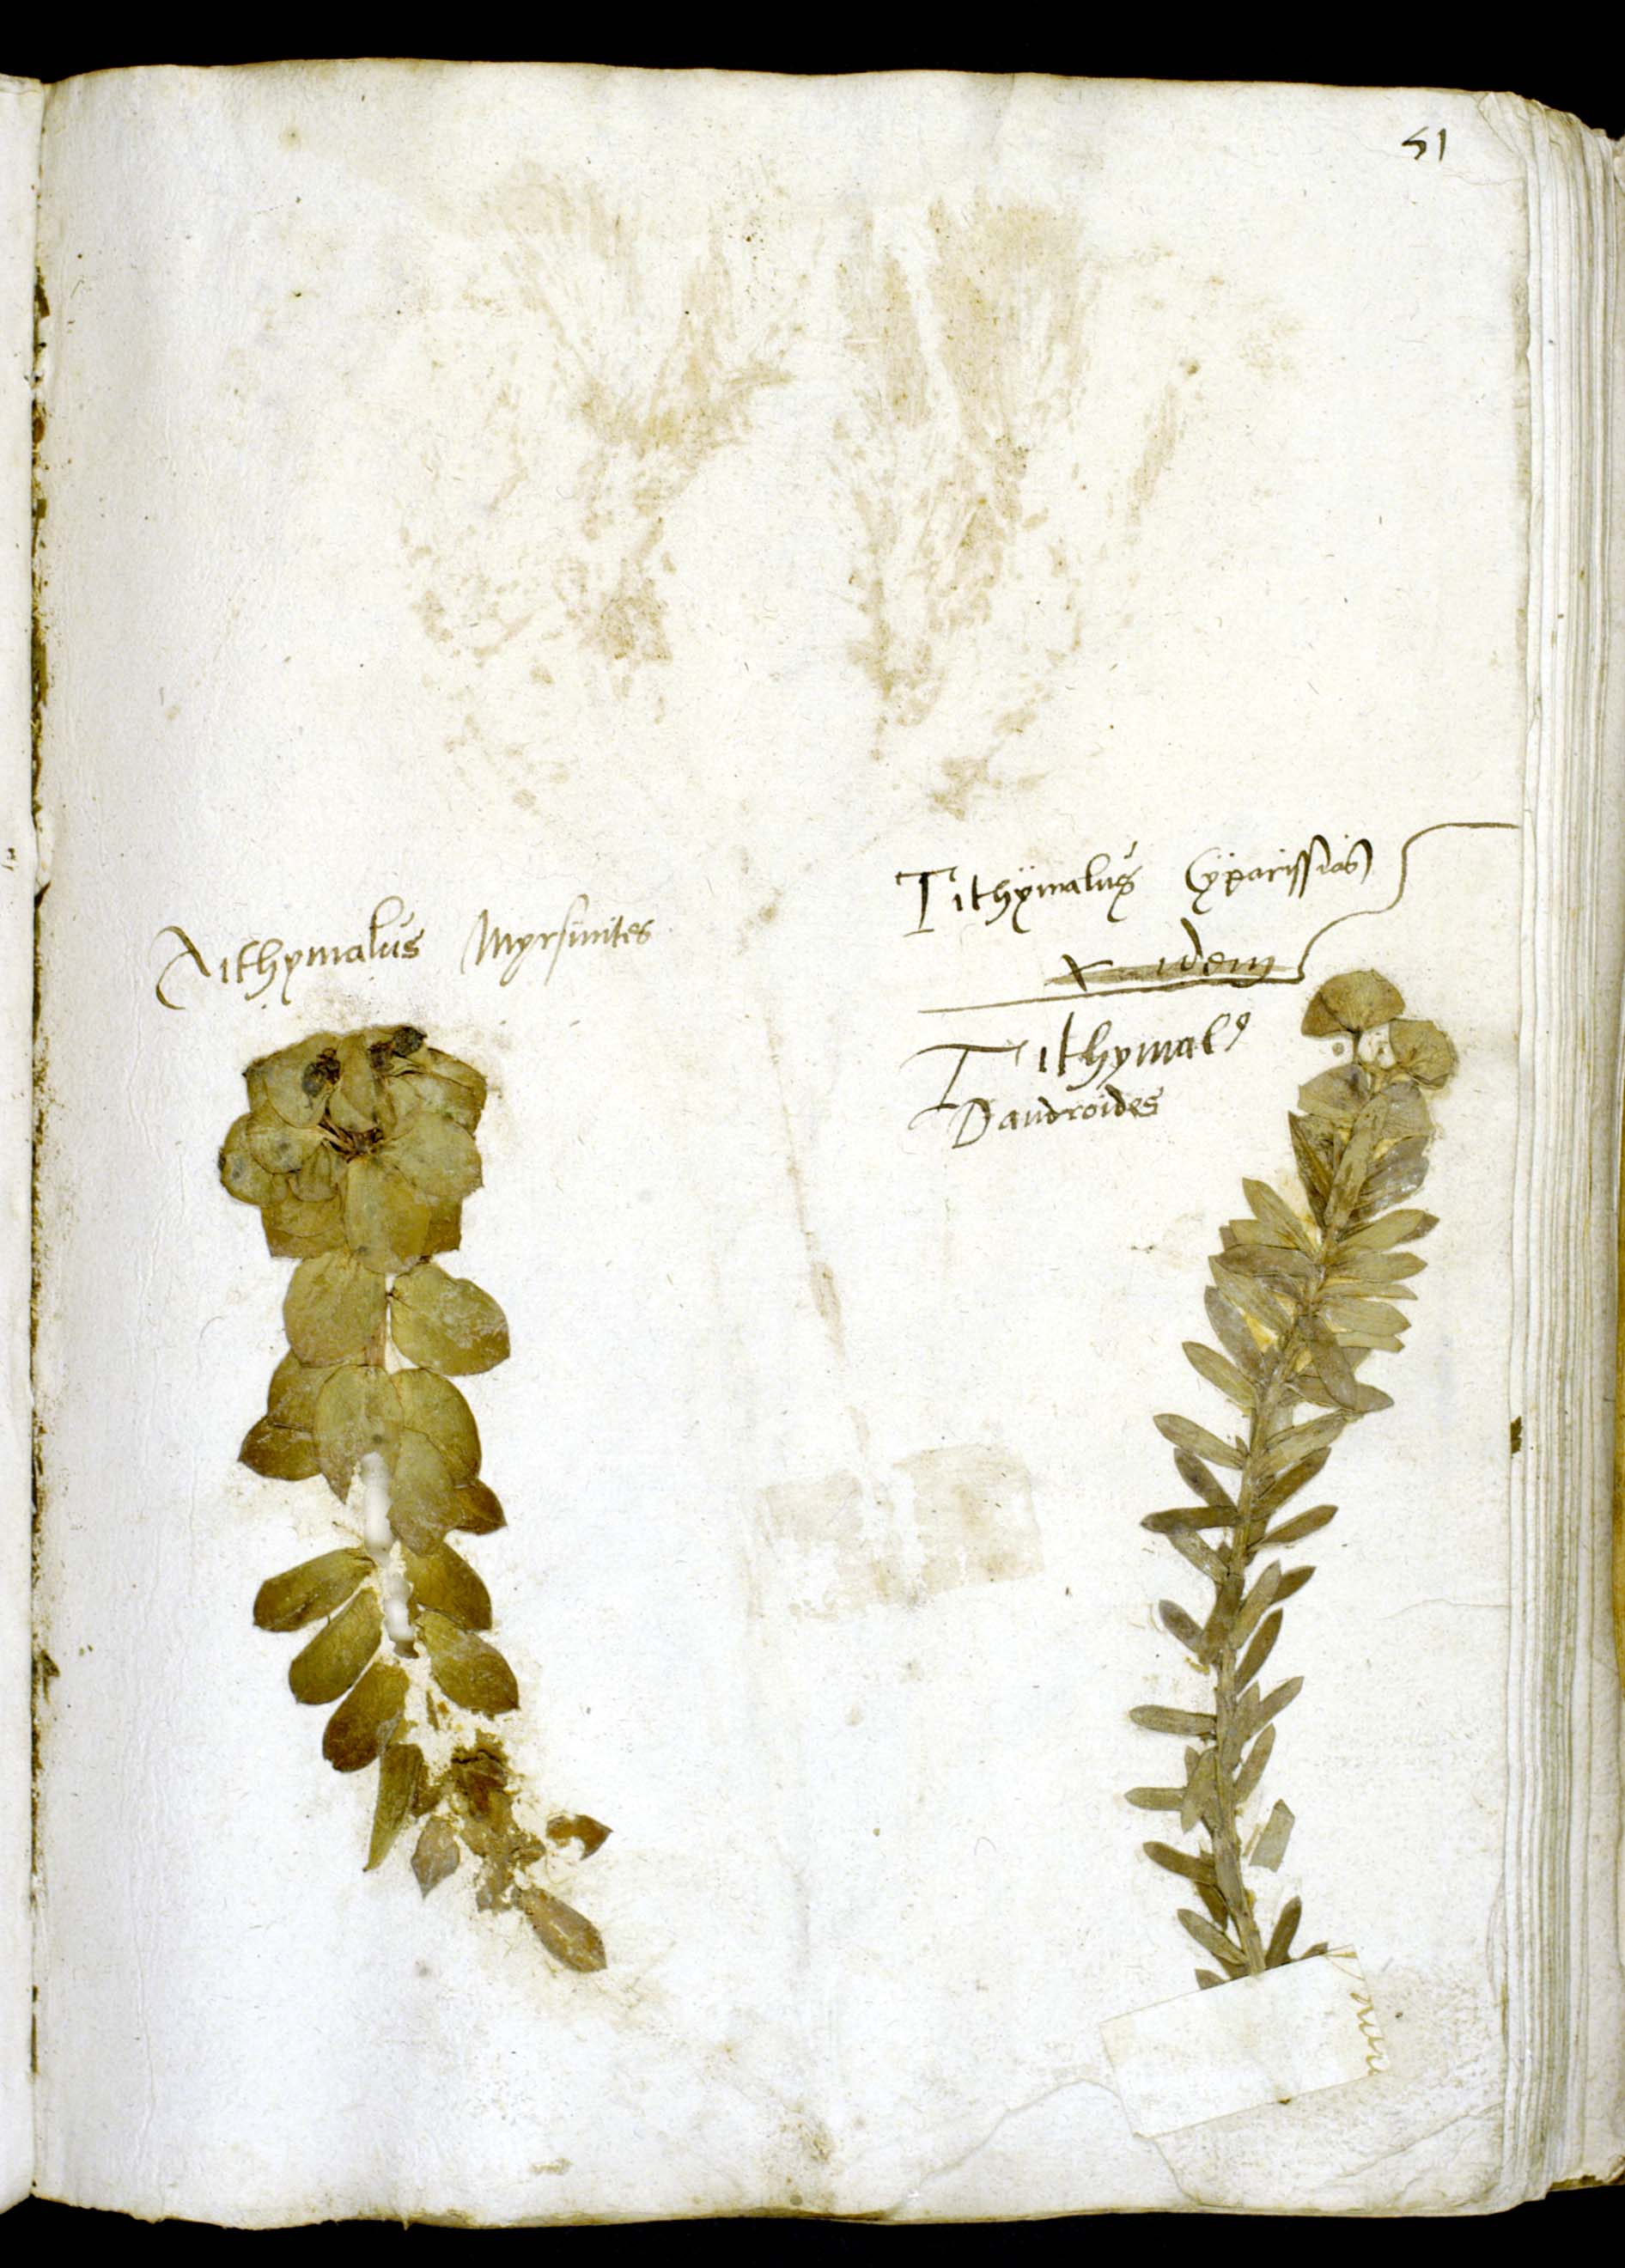 51
Tithymalus Myrsinites
Tithÿmalus Cÿparissias
idem
Tithymalꝰ
Dandroides